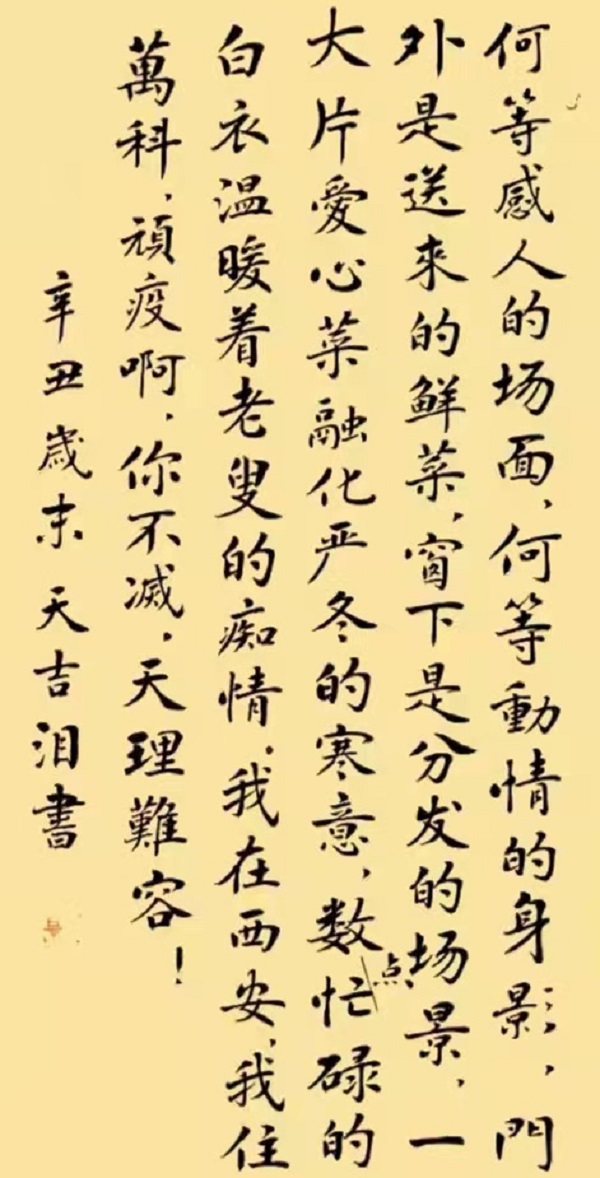 何等感人的场面，何等動情的身影，門
外是送來的鮮菜，窗下是分发的场景，一
大片愛心菜融化严冬的寒意，数点忙碌的
白衣温暖着老叟的痴情，我在西安，我住
萬科，頑疫啊，你不滅，天理難容！
辛丑歲末天吉泪書